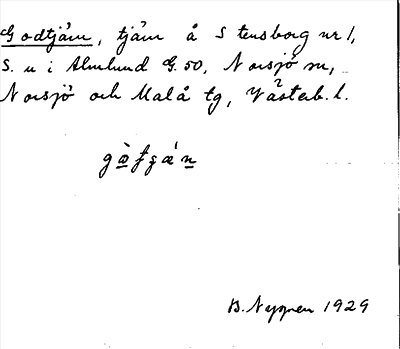 Godtjärn, tjärn å Stensborg nr 1,
S. u i Almlund G. 50, Norsjö sn,
Norsjö och Malå tg, Västerb. l.
B. Nygren 1929